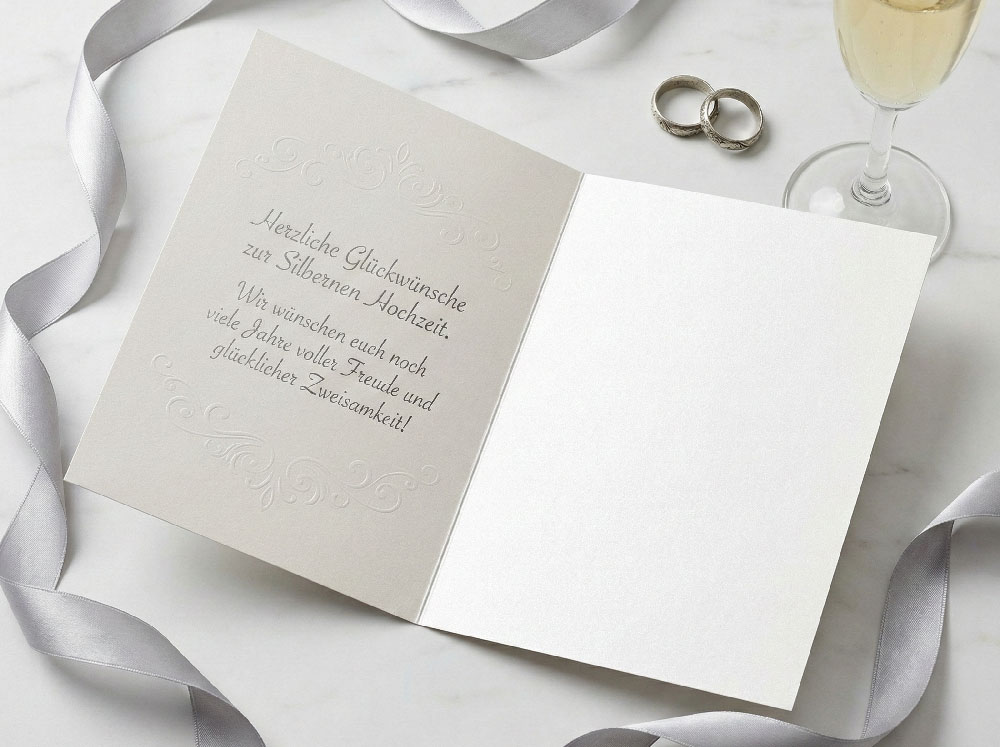 Herzliche Glückwünsche
zur Silbernen Hochzeit.
Wir wünschen euch noch
viele Jahre voller Freude und
glücklicher Zweisamkeit!